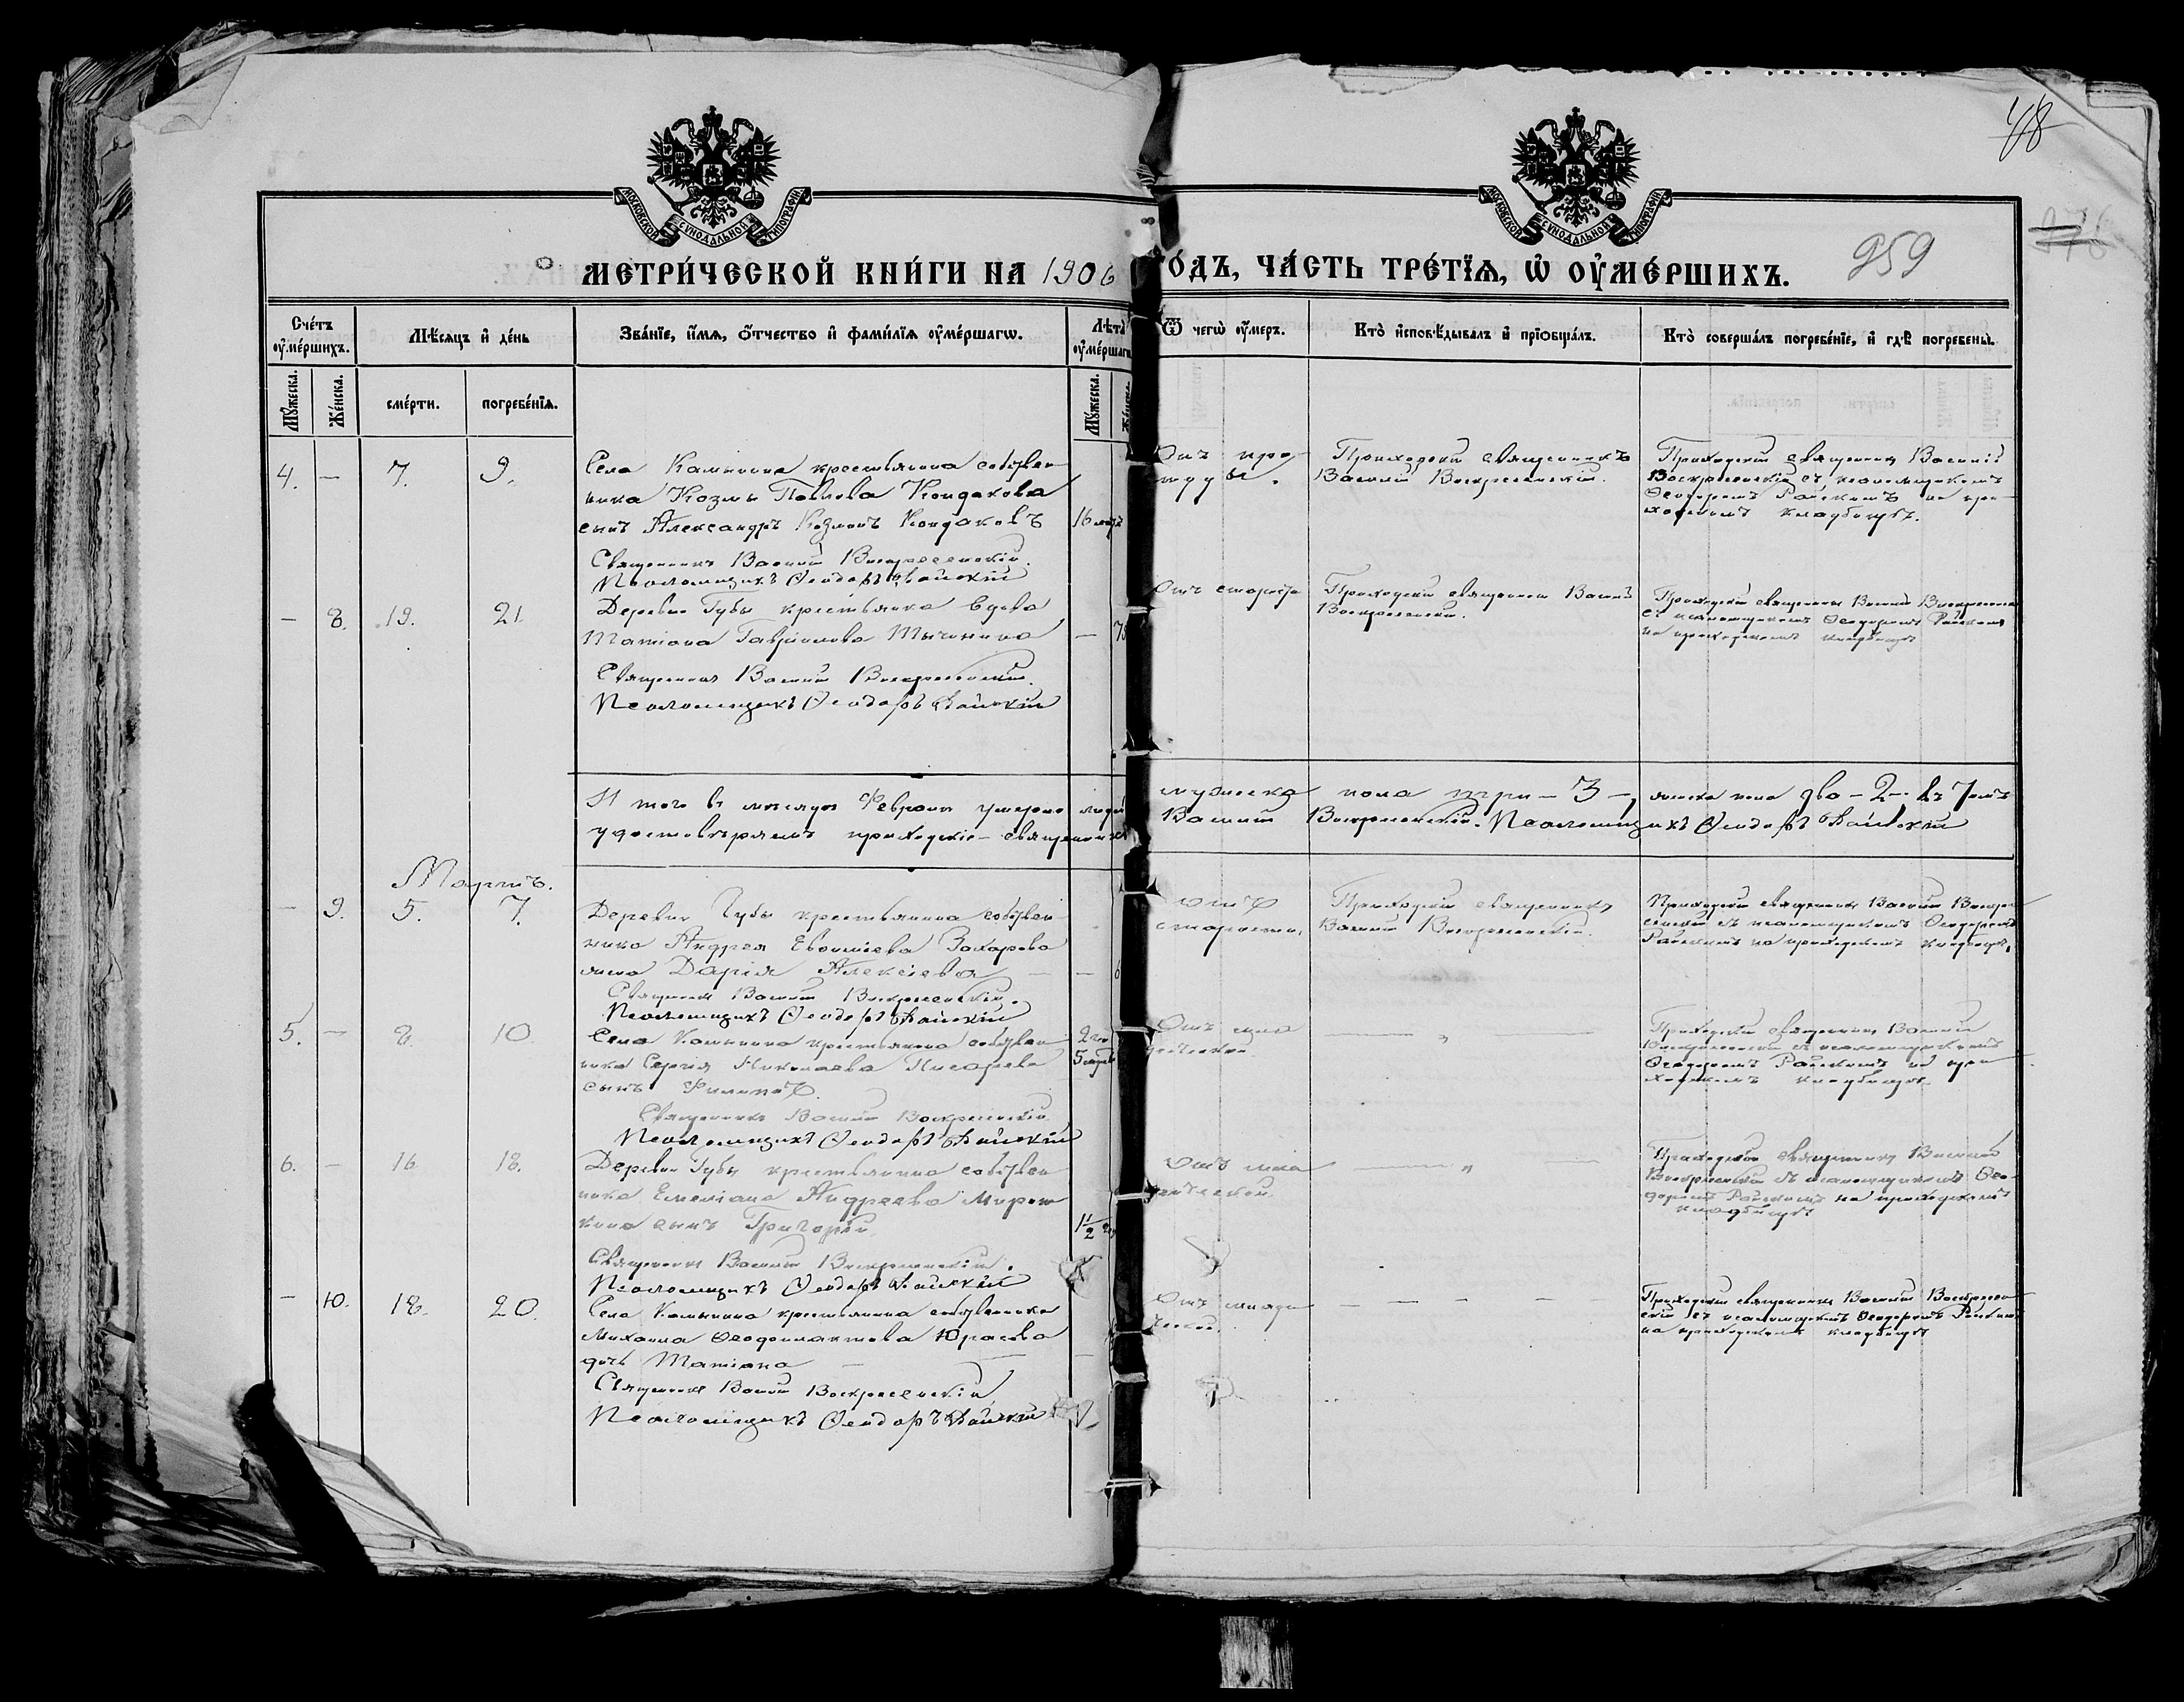 48
МОСКОВСКОЙ СѴНОДАЛЬНОЙ ТИПОГРАФІИ
МОСКОВСКОЙ СѴНОДАЛЬНОЙ ТИПОГРАФІИ
МЕТРИ́ЧЕСКОЙ КНИ́ГИ НА 1906
ОДЪ, ЧА́СТЬ ТРЕ́ТІѦ, Ѡ҆ ОУ҆МЕ́РШИХЪ.
959
Сче́тъ оу҆ме́ршихъ.
Мѣ́сѧцъ и҆ де́нь
Зва́нїе, и҆́мѧ, ѻ҆́тчество и҆ фами́лїѧ оу҆ме́ршагѡ.
Лѣ́та оу҆ме́ршаг
Ѿ чегѡ̀ оу҆́меръ.
Кто̀ и҆сповѣ́дывалъ и҆ прїѻбща́лъ.
Кто̀ соверша́лъ погребе́нїе, и҆ гдѣ̀ погребены̀.
Мꙋ́жеска.
Же́нска.
сме́рти.
погребе́нїѧ.
Мꙋ́жеска.
4. — 7. 9.
Села крестьянина собствен
ника Козмы Павлова Кондакова
сынъ Александръ Козминъ Кондаковъ
Священникъ Василій Воскресенскій.
Псаломщикъ Ѳеодоръ Райскій
Приходскій священникъ
Василій Воскресенскій.
Приходскій священникъ Василій
Воскресенскій съ псаломщикомъ
Ѳеодоромъ Райскимъ на при-
ходскомъ кладбищѣ.
— 8. 19. 21.
Деревни Губы крестьянка вдова
Татіана Гавріилова
Священникъ Василій Воскресенскій.
Псаломщикъ Ѳеодоръ Райскій
Отъ старости
Приходскій священникъ Василій
Воскресенскій.
Приходскій священникъ Василій Воскресенскій
съ псаломщикомъ Ѳеодоромъ Райскимъ
на приходскомъ кладбищѣ
И того въ мѣсяцѣ Февралѣ умерло людей
мужеска пола три – 3 –, женска пола два – 2 –.
удостовѣряемъ приходскіе – священникъ
Василій Воскресенскій. Псаломщикъ Ѳеодоръ Райскій
Мартъ.
— 9. 5. 7.
Деревни Губы крестьянина собствен
ника Андрея Захарова
жена Дарія Алексіева
Священникъ Василій Воскресенскій.
Псаломщикъ Ѳеодоръ Райскій
отъ
старости,
Приходскій священникъ
Василій Воскресенскій.
Приходскій священникъ Василій Воскре
сенскій съ псаломщикомъ Ѳеодоромъ
Райскимъ на приходскомъ кладбищѣ.
5. — 8. 10.
Села крестьянина собствен
ника Сергія Николаева Писарева
сынъ Филиппъ.
Священникъ Василій Воскресенскій
Псаломщикъ Ѳеодоръ Райскій
Приходскій священникъ Василій
Воскресенскій съ псаломщикомъ
Ѳеодоромъ Райскимъ на при
ходскомъ кладбищѣ.
6. — 16 18.
Деревни Губы крестьянина собствен
ника Емеліана Андреева
сынъ Григорій
Священникъ Василій Воскресенскій.
Псаломщикъ Ѳеодоръ Райскій
1 1/2
Приходскій священникъ Василій
Воскресенскій съ псаломщикомъ Ѳео-
доромъ Райскимъ на приходскомъ
кладбищѣ
— 10. 18. 20.
Села крестьянина собственника
Михаила Ѳеофилактова Юрасова
дочь Татіана
Священникъ Василій Воскресенскій
Псаломщикъ Ѳеодоръ Райскій
Приходскій священникъ Василій Воскресен
скій съ псаломщикомъ Ѳеодоромъ Райскимъ
на приходскомъ кладбищѣ